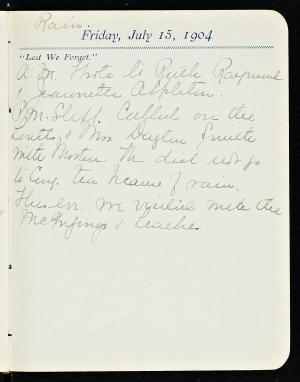 Rain.
Friday, July 15, 1904
"Lest We Forget."
A.M. Wrote to Ruth Raymond
& Jeannette Appleton.
P.M. Slept. Called on the
& Mrs Smith
with We did not go
to Eng. Tea because of rain.
This ev. we visited with the
& Leaches